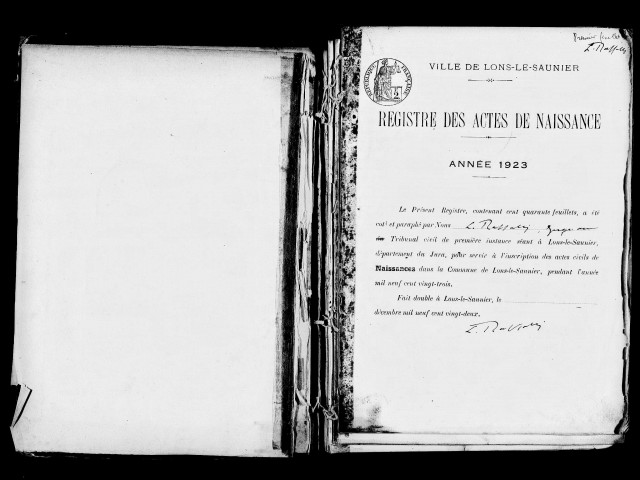 Premier feuillet
VILLE DE LONS-LE-SAUNIER
RÉPUBLIQUE FRANÇAISE
REGISTRE DES ACTES DE NAISSANCE
ANNÉE 1923
Le Présent Registre, contenant cent quarante feuillets, a été
coté et paraphé par Nous
au Tribunal civil de première instance séant à Lons-le-Saunier,
département du Jura, pour servir à l'inscription des actes civils de
Naissances dans la Commune de Lons-le-Saunier, pendant l'année
mil neuf cent vingt-trois.
Fait double à Lons-le-Saunier, le
décembre mil neuf cent vingt-deux.